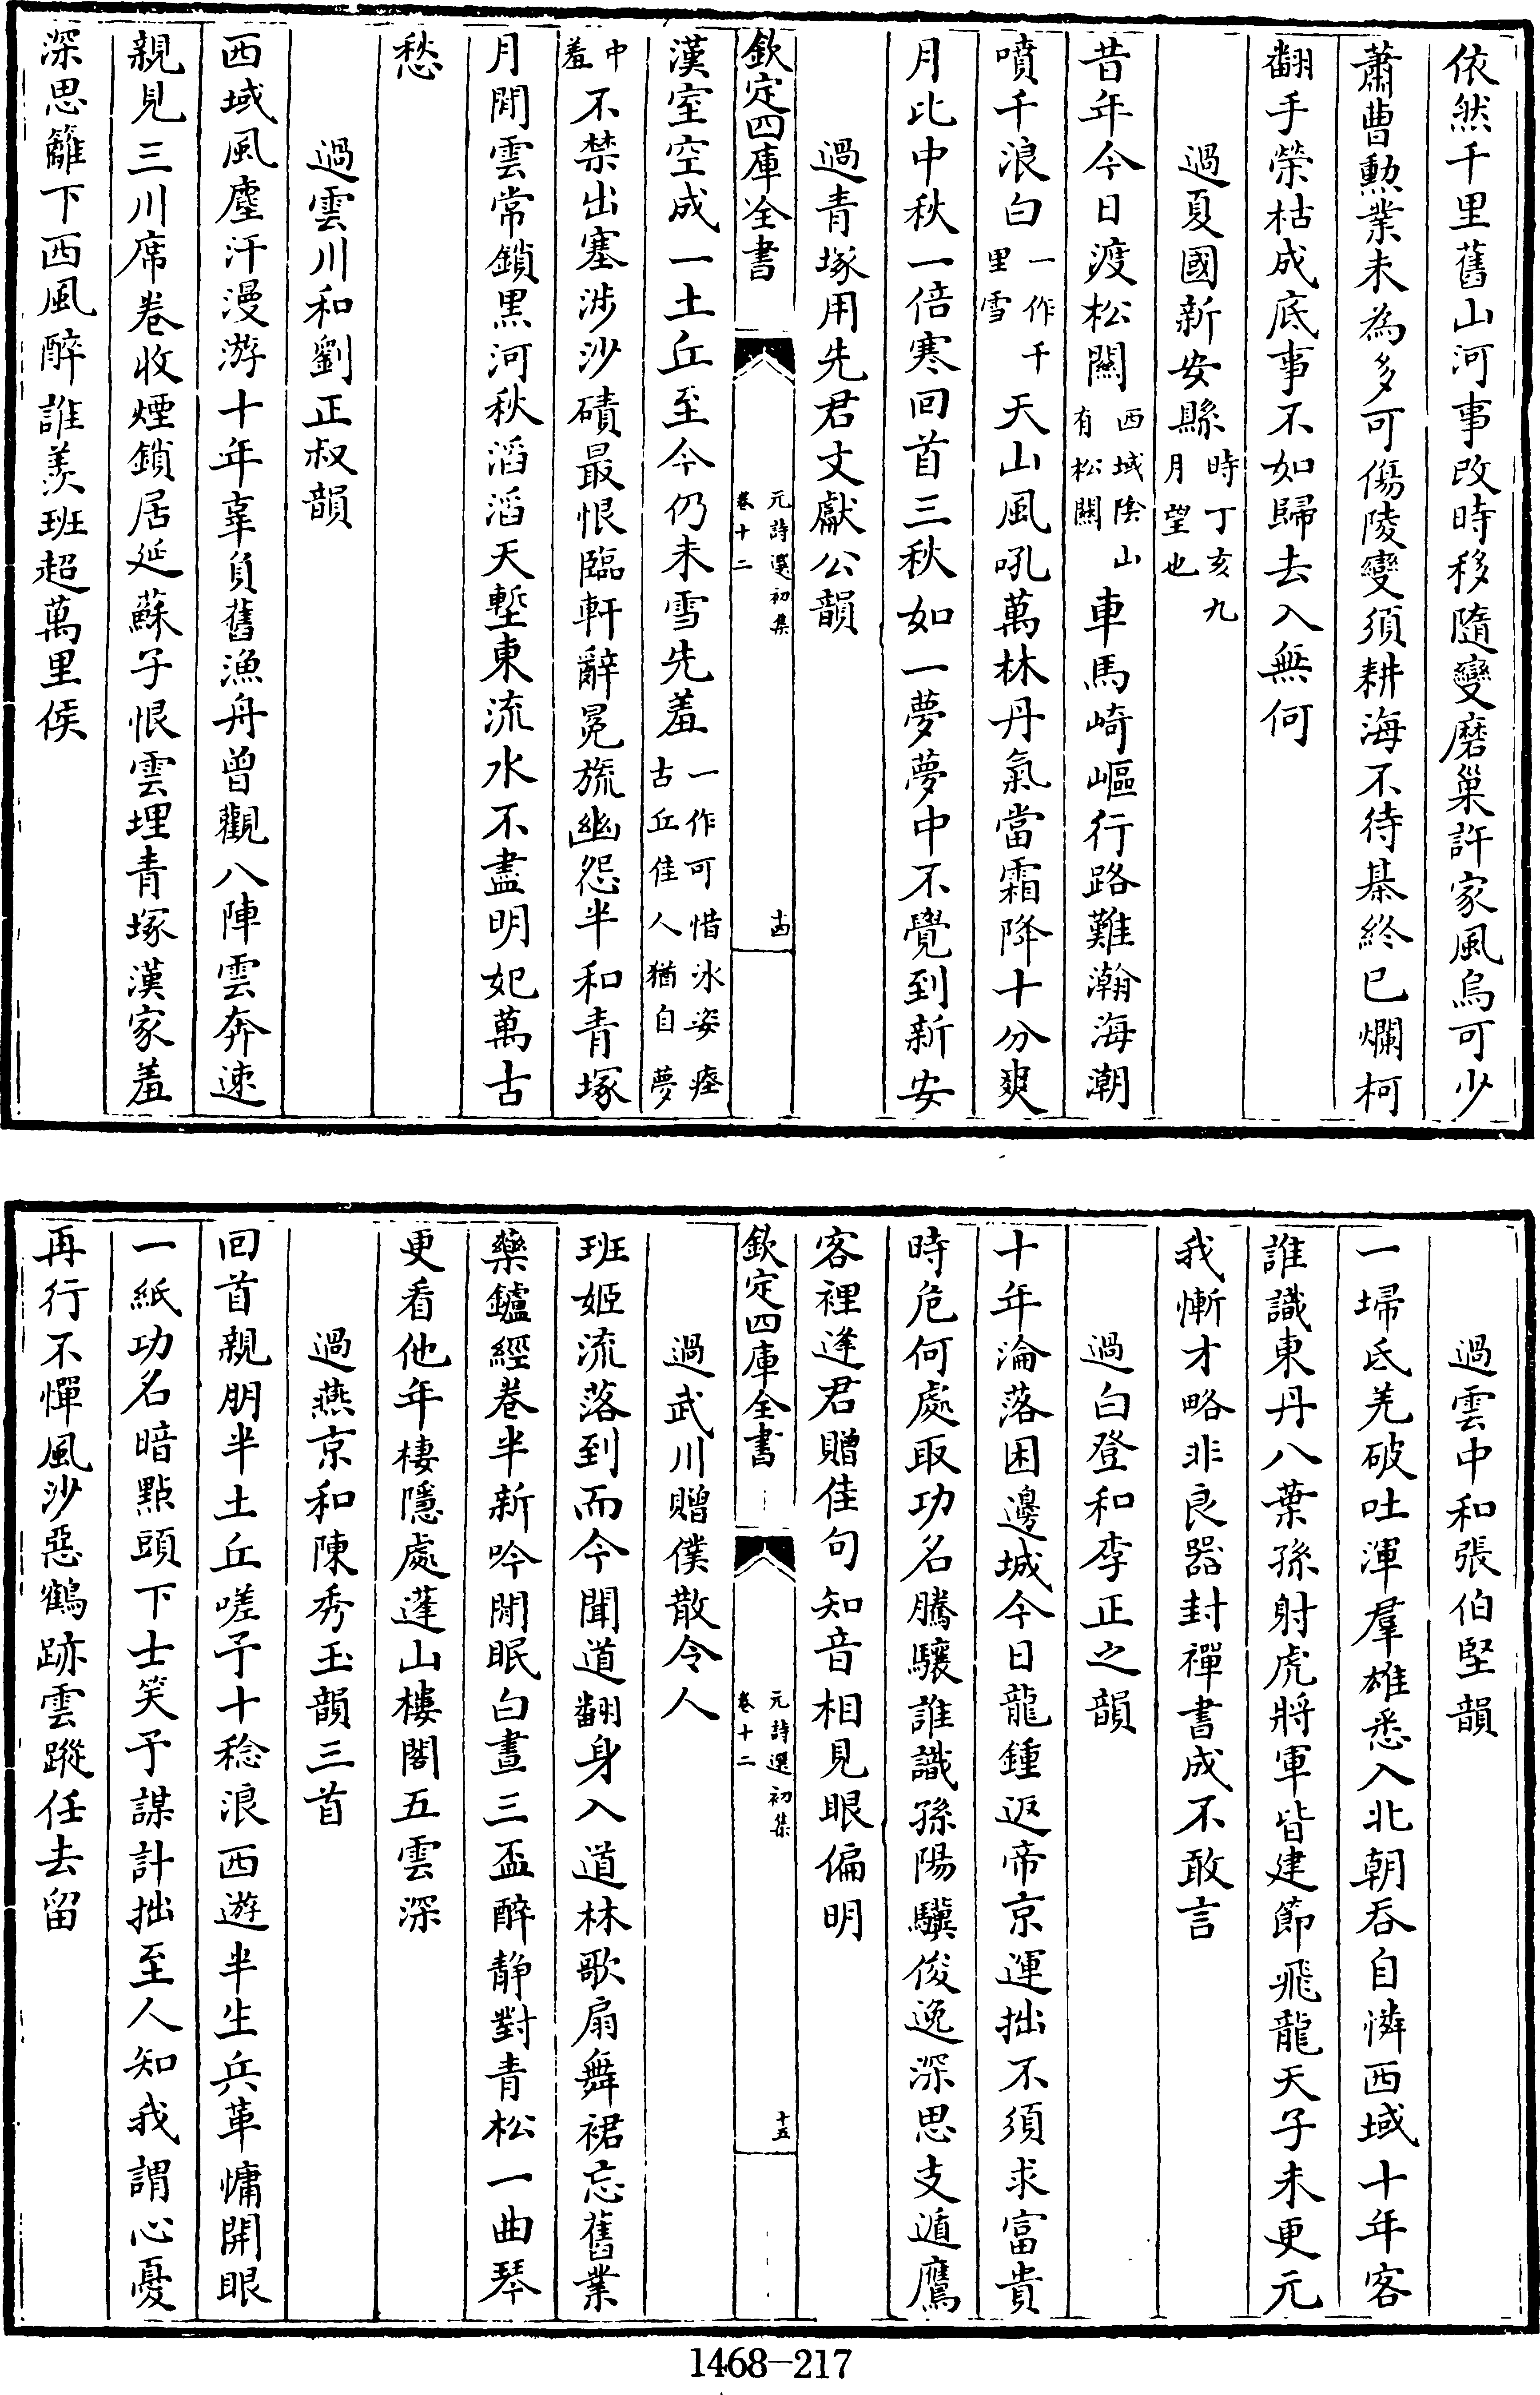 依然千里舊山河事改時移隨變磨巢許家風烏可少
蕭曹勲業未為多可傷陵變須耕海不待棊終已爛柯
翻手榮枯成底事不如歸去入無何
過夏國新安縣時丁亥九月望也
昔年今日渡松關西域陰山有松關車馬崎嶇行路難瀚海潮
噴千浪白一作千里雪天山風吼萬林丹氣當霜降十分爽
月比中秋一倍寒回首三秋如一夢夢中不覺到新安
過青塚用先君文獻公韻
欽定四庫全書
元詩選初集
卷十二
十四
漢室空成一土丘至今仍未雪先羞一作可惜氷姿瘞古丘佳人猶自夢
中羞不禁出塞涉沙磧最恨臨軒辭冕旒幽怨半和青塚
月閒雲常鎖黑河秋滔滔天塹東流水不盡明妃萬古
愁
過雲川和劉正叔韻
西域風塵汗漫游十年辜負舊漁舟曾觀八陣雲奔速
親見三川席卷收煙鎖居延蘇子恨雲埋青塚漢家羞
深思籬下西風醉誰羨班超萬里侯
過雲中和張伯堅韻
一埽氐羌破吐渾羣雄悉入北朝吞自憐西域十年客
誰識東丹八葉孫射虎將軍皆建節飛龍天子未更元
我慚才略非良器封禪書成不敢言
過白登和李正之韻
十年淪落困邊城今日龍鍾返帝京運拙不須求富貴
時危何處取功名騰驤誰識孫陽驥俊逸深思支遁鷹
客裡逢君贈佳句知音相見眼偏明
欽定四庫全書
元詩選初集
卷十二
十五
過武川贈僕散令人
班姬流落到而今聞道翻身入道林歌扇舞裙忘舊業
藥鑪經卷半新吟閒眠白晝三盃醉静對青松一曲琴
更看他年棲隱處蓬山樓閣五雲深
過燕京和陳秀玉韻三首
回首親朋半土丘嗟予十稔浪西遊半生兵革慵開眼
一紙功名暗點頭下士笑予謀計拙至人知我謂心憂
再行不憚風沙惡鶴跡雲蹤任去留
1468-217